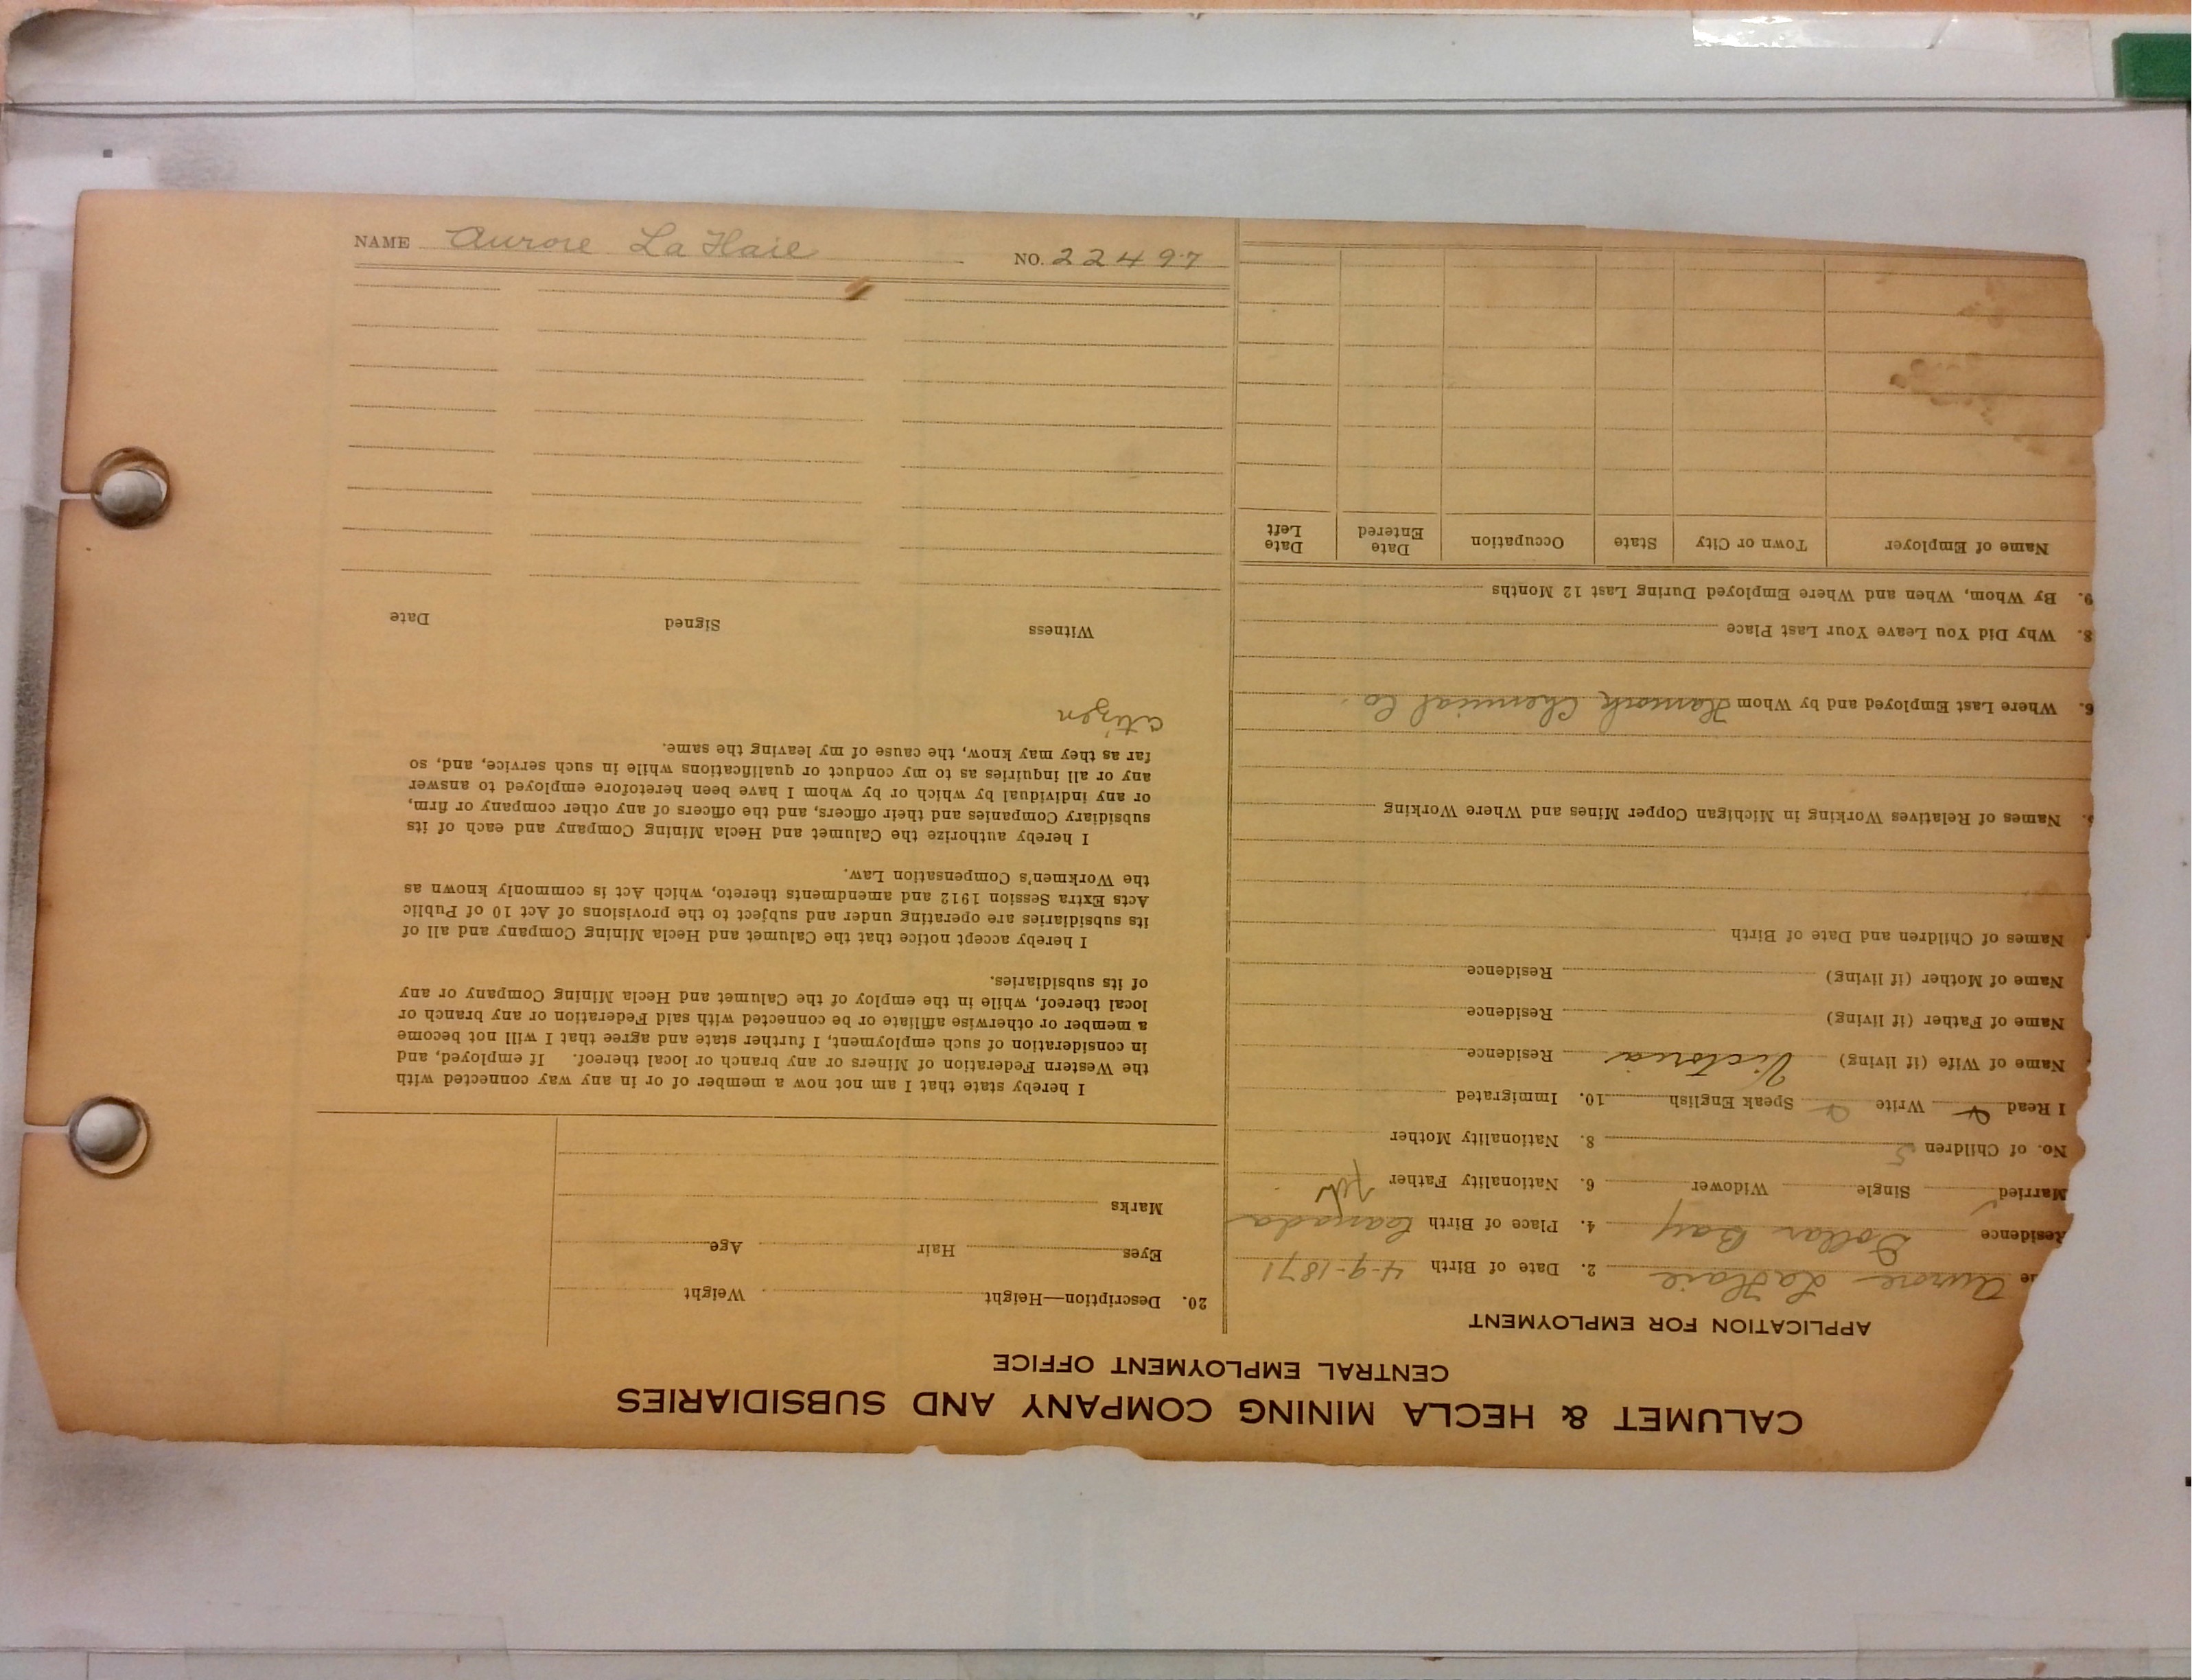 CALUMET & HECLA MINING COMPANY AND SUBSIDIARIES
CENTRAL EMPLOYMENT OFFICE
APPLICATION FOR EMPLOYMENT
Aurore La Haie 2. Date of Birth 4-9-1871
Residence Dollar Bay 4. Place of Birth Canada
Married Single Widower 6. Nationality Father
No. of Children 5 8. Nationality Mother
I Read Write Speak English 10. Immigrated
Name of Wife (if living) Victoria Residence
Name of Father (if living) Residence
Name of Mother (if living) Residence
Names of Children and Date of Birth
Names of Relatives Working in Michigan Copper Mines and Where Working
6. Where Last Employed and by Whom Chemical Co.
8. Why Did You Leave Your Last Place
9. By Whom, When and Where Employed During Last 12 Months
Name of Employer Town or City State Occupation Date Entered Date Left
20. Description—Height Weight
Eyes Hair Age
Marks
I hereby state that I am not now a member of or in any way connected with
the Western Federation of Miners or any branch or local thereof. If employed, and
in consideration of such employment, I further state and agree that I will not become
a member or otherwise affiliate or be connected with said Federation or any branch or
local thereof, while in the employ of the Calumet and Hecla Mining Company or any
of its subsidiaries.
I hereby accept notice that the Calumet and Hecla Mining Company and all of
its subsidiaries are operating under and subject to the provisions of Act 10 of Public
Acts Extra Session 1912 and amendments thereto, which Act is commonly known as
the Workmen's Compensation Law.
I hereby authorize the Calumet and Hecla Mining Company and each of its
subsidiary Companies and their officers, and the officers of any other company or firm,
or any individual by which or by whom I have been heretofore employed to answer
any or all inquiries as to my conduct or qualifications while in such service, and, so
far as they may know, the cause of my leaving the same.
citizen
Witness Signed Date
NAME Aurore La Haie NO. 22497